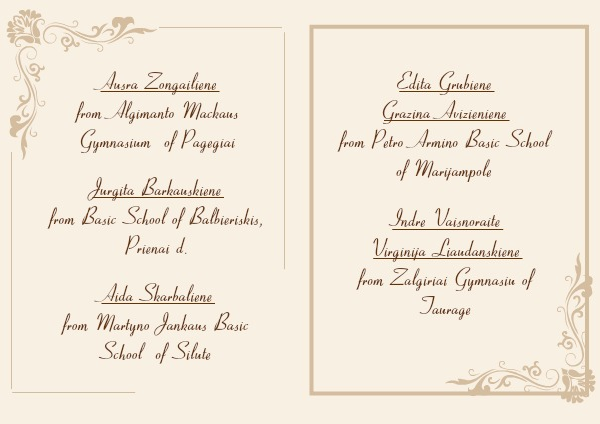 Ausra Zongailiene
from Algimanto Mackaus
Gymnasium of Pagegiai
Jurgita Barkauskiene
from Basic School of Balbieriskis,
Prienai d.
Aida Skarbaliene
from Martyno Jankaus Basic
School of Silute
Edita Grubiene
Grazina Avizieniene
from Petro Armino Basic School
of Marijampole
Indre Vaisnoraite
Virginija Liaudanskiene
from Zalgiriai Gymnasiu of
Taurage